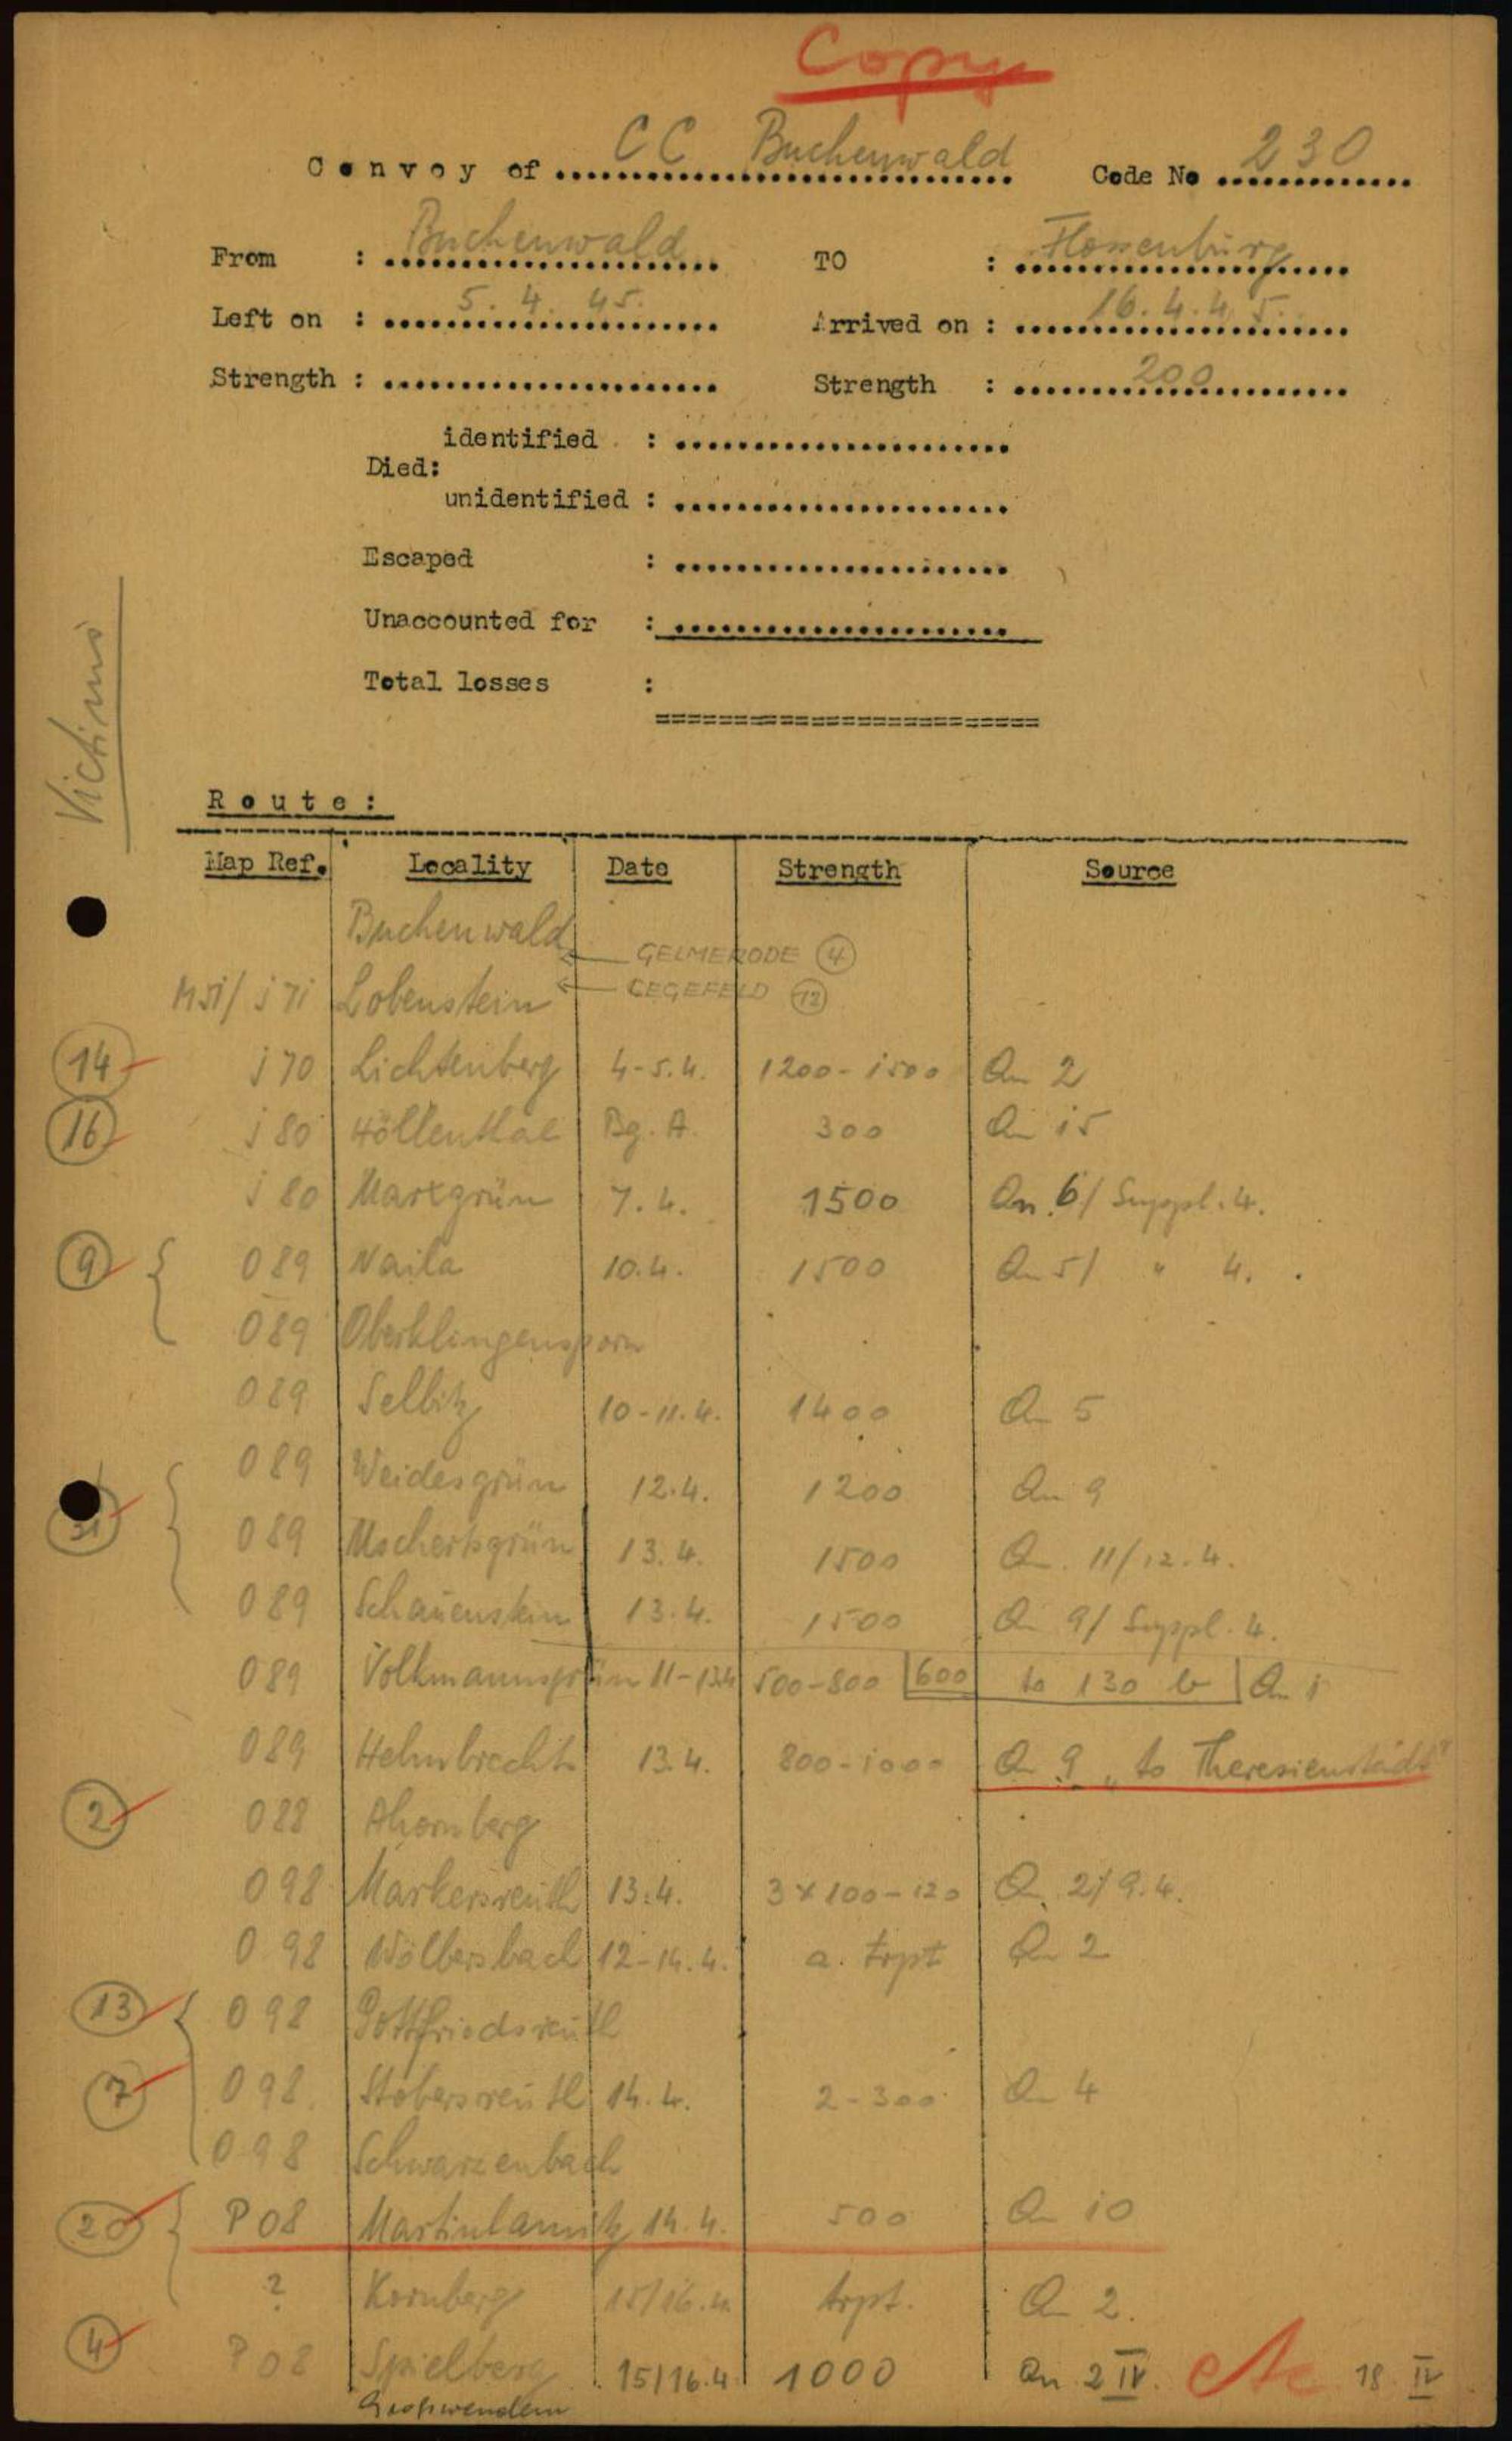 Copy
Convoy of CC Buchenwald Code No 230
From : Buchenwald TO : Flossenbürg
Left on : 5. 4. 45. Arrived on : 16. 4. 45.
Strength : Strength : 200
identified :
Died:
unidentified :
Escaped :
Unaccounted for :
Total losses :
Victims
Route:
Map Ref. Locality Date Strength Source
Buchenwald
← GELMERODE 4
Lobenstein ← 12
14 j 70 Lichtenberg 4-5.4. 1200-1500 Qu 2
16 j 80 Höllenthal Bg. A. 300 Qu 15
j 80 Marxgrün 7.4. 1500 Qu 6/ Suppl. 4.
9 { 089 Naila 10.4. 1500 Qu 5/ " 4.
089 Oberklingensporn
089 Selbitz 10-11.4. 1400 Qu 5
089 Weidesgrün 12.4. 1200 Qu 9
089 13.4. 1500 Qu. 11/12.4.
089 Schauenstein 13.4. 1500 Qu 9/ Suppl. 4.
089 Volkmannsgrün 11-13.4 500-800 600 to 130 b Qu 1
089 Helmbrechts 13.4. 800-1000 Qu 9 "to Theresienstadt"
2 088 Ahornberg
098 Markersreuth 13.4. 3 x 100-120 Qu. 2/9.4.
098 Wölbersbach 12-14.4. a. trpt Qu 2
13 { 098 Gottfriedsreuth
7 098 Stobersreuth 14.4. 2-300 Qu 4
098 Schwarzenbach
20 { P08 Martinlamitz 14.4. 500 Qu 10
? Kornberg 15/16.4. trpt. Qu 2.
4 P08 Spielberg 15/16.4. 1000 Qu 2 IV. 18 IV
Großwendern